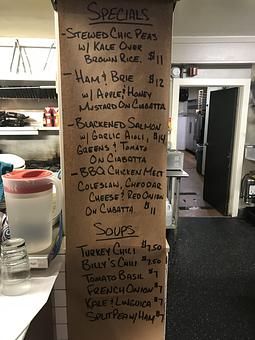 SPECIALS
- STEWED CHIC PEAS
W/ KALE OVER
BROWN RICE. $11
- HAM & BRIE $12
W/ APPLE & HONEY
MUSTARD ON CIABATTA
- BLACKENED SALMON
W/ GARLIC AIOLI, $14
GREENS & TOMATO
ON CIABATTA
- BBQ CHICKEN MELT
COLESLAW, CHEDDAR
CHEESE & RED ONION
ON CIABATTA $11
SOUPS
TURKEY CHILI $7.50
BILLY'S CHILI $7.50
TOMATO BASIL $7
FRENCH ONION $7
KALE & LINGUICA $7
SPLIT PEA W/ HAM $7